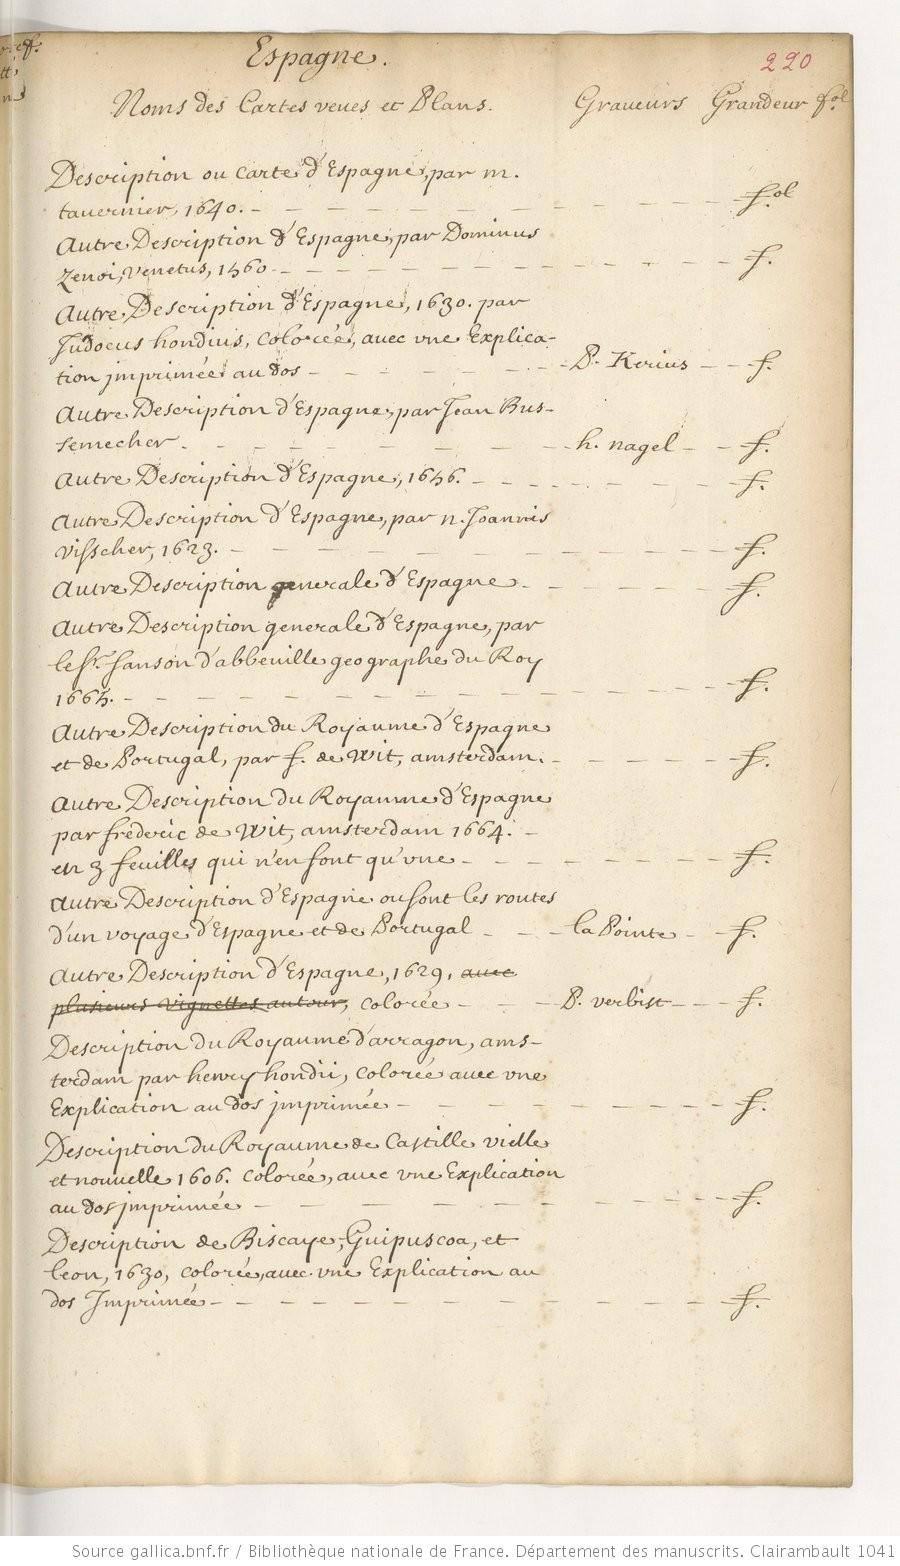 Espagne.
220
Noms des Cartes veues et Plans. Graveurs Grandeur fol
Description ou carte d'Espagne, par m.
tavernier, 1640. - - - - - - - - - - fol
Autre Description d'Espagne, par Dominus
Zenoi, Venetus, 1560 - - - - - - - - - f.
Autre Description d'Espagne, 1630. par
Judocus hondius, colorée, avec une Explica-
tion jmprimée au dos - - - - - - P. Kerius - - f.
Autre Description d'Espagne, par Jean Bus-
semecher. - - - - - - h. nagel - - f.
Autre Description d'Espagne, 1646. - - - - - - - f.
Autre Description d'Espagne, par n. Joannis
Visscher, 1623. - - - - - - - - - - f.
Autre Description generale d'Espagne - - - - - f.
Autre Description generale d'Espagne, par
le Sr. Sanson d'abbeville geographe du Roy
1665. - - - - - - - - - - - - - f.
Autre Description du Royaume d'Espagne
et de Portugal, par f. de Wit, amsterdam. - - - - - f.
Autre Description du Royaume d'Espagne
par fréderic de Wit, amsterdam 1664. -
en 3 feuilles qui n'en font qu'une - - - - - - - f.
Autre Description d'Espagne ou sont les routes
d'un voyage d'Espagne et de Portugal - - - la Pointe - - f.
Autre Description d'Espagne, 1629, avec
plusieurs vignettes autour, colorée - - - P. verbist - - - f.
Description du Royaume d'arragon, ams-
terdam par henry hondii, colorée avec une
Explication au dos jmprimée - - - - - - - - - f.
Description du Royaume de Castille vielle
et nouvelle 1606. colorée, avec une Explication
au dos jmprimée - - - - - - - - - - - f.
Description de Biscaye, Guipuscoa, et
leon, 1630, colorée, avec une Explication au
dos Jmprimée - - - - - - - - - - - - - f.
Source gallica.bnf.fr / Bibliothèque nationale de France. Département des manuscrits. Clairambault 1041